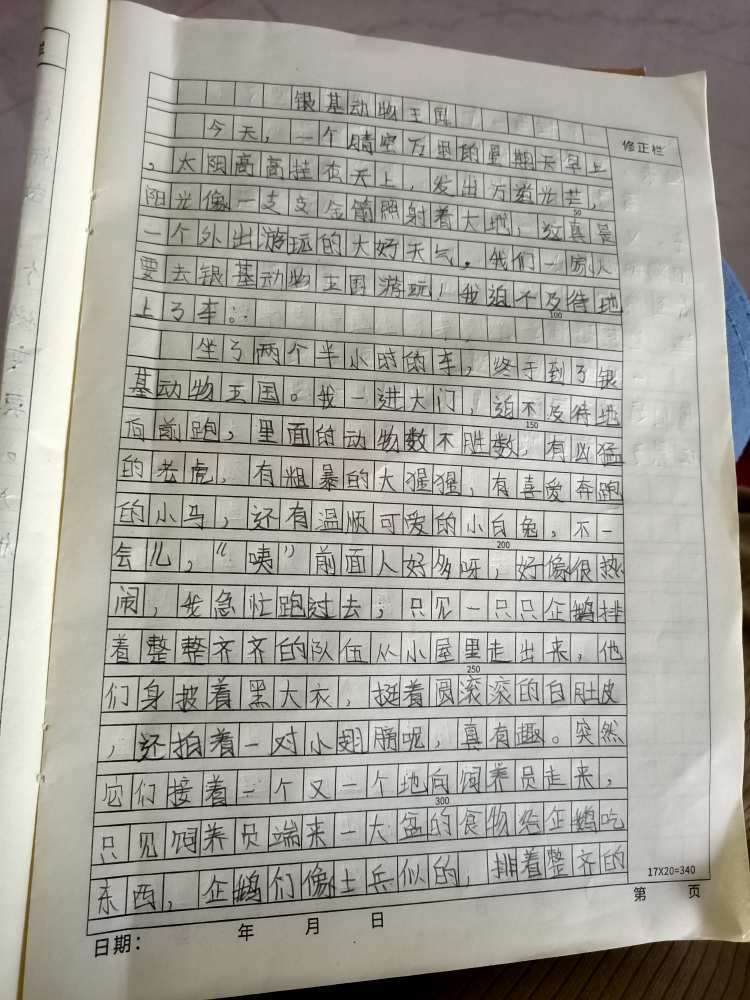 银基动物王国
今天，一个晴空万里的星期天早上
，太阳高高挂在天上，发出万道光芒，
阳光像一支支金箭照射着大地，这真是
50
一个外出游玩的大好天气。我们一家人
要去银基动物王国游玩！我迫不及待地
100
上了车…
坐了两个半小时的车，终于到了银
基动物王国。我一进大门，迫不及待地
150
向前跑，里面的动物数不胜数，有凶猛
的老虎，有粗暴的大猩猩，有喜爱奔跑
的小马，还有温顺可爱的小白兔。不一
200
会儿，“咦”前面人好多呀，好像很热
闹，我急忙跑过去，只见一只只企鹅排
着整整齐齐的队伍从小屋里走出来，他
250
们身披着黑大衣，挺着圆滚滚的白肚皮
，还拍着一对小翅膀呢，真有趣。突然
它们接着一个又一个地向饲养员走来，
300
只见饲养员端来一大盆的食物给企鹅吃
东西，企鹅们像士兵似的，排着整齐的
修正栏
17X20=340
第 页
日期： 年 月 日